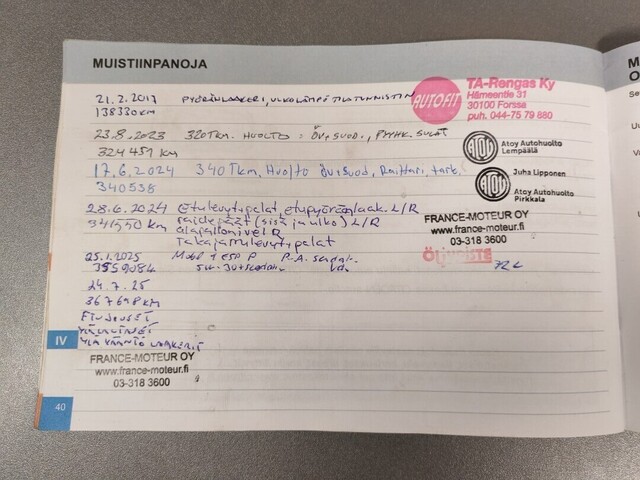 MUISTIINPANOJA
21.2.2017 PYÖRÄNLAAKERI, ULKOLÄMPÖTILATUNNISTIN
138330KM
AUTOFIT
TA-Rengas Ky
Hämeentie 31
30100 Forssa
puh. 044-75 79 880
23.8.2023 320TKM. HUOLTO: ÖV+SUOD., PYYHK. SULAT
324451 KM
ATOY
Atoy Autohuolto
Lempäälä
17.6.2024 340TKM, Huolto öv+suod, Raittari, tark.
340538
ATOY
Juha Lipponen
Atoy Autohuolto
Pirkkala
28.6.2024 Etulevyt+palat, etupyöränlaak. L/R
341550 km raidepäät (sisä ja ulko) L/R
alapallonivel R
Takajarrulevyt+palat
FRANCE-MOTEUR OY
www.france-moteur.fi
03-318 3600
25.1.2025 Mobil 1 ESP P
ÖLJYPISTE
24.7.25
367698KM
ETUJOUSET
YLÄ KÄÄNTÖ LAAKERIT
FRANCE-MOTEUR OY
www.france-moteur.fi
03-318 3600
IV
40
M
O
Se
V